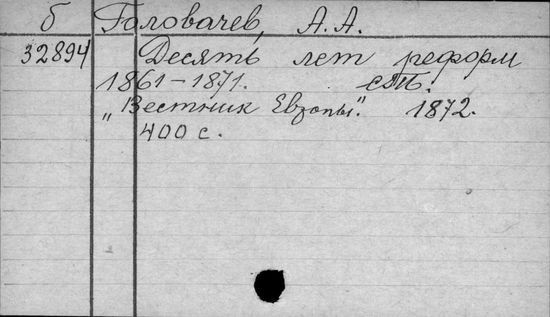 б Головачев, А. А.
32894 Десять лет реформ
1861–1871. СПб.
"Вестник Европы". 1872.
400 с.